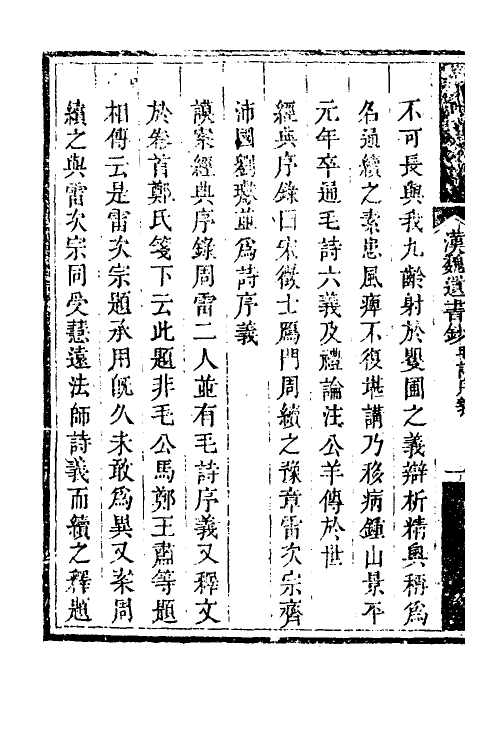 不可長與我九齡射於矍圃之義辯析精奧稱爲
名通續之素患風痺不復堪講乃移病鍾山景平
元年卒通毛詩六義及禮論注公羊傳於世
經典序錄曰宋徵士鴈門周續之豫章雷次宗齊
沛國劉瓛並爲詩序義
謨案經典序錄周雷二人並有毛詩序義又釋文
於卷首鄭氏箋下云此題非毛公馬鄭王肅等題
相傳云是雷次宗題承用旣久未敢爲異又案周
續之與雷次宗同受慧遠法師詩義而續之釋題
漢魏遺書鈔 毛詩序義 一